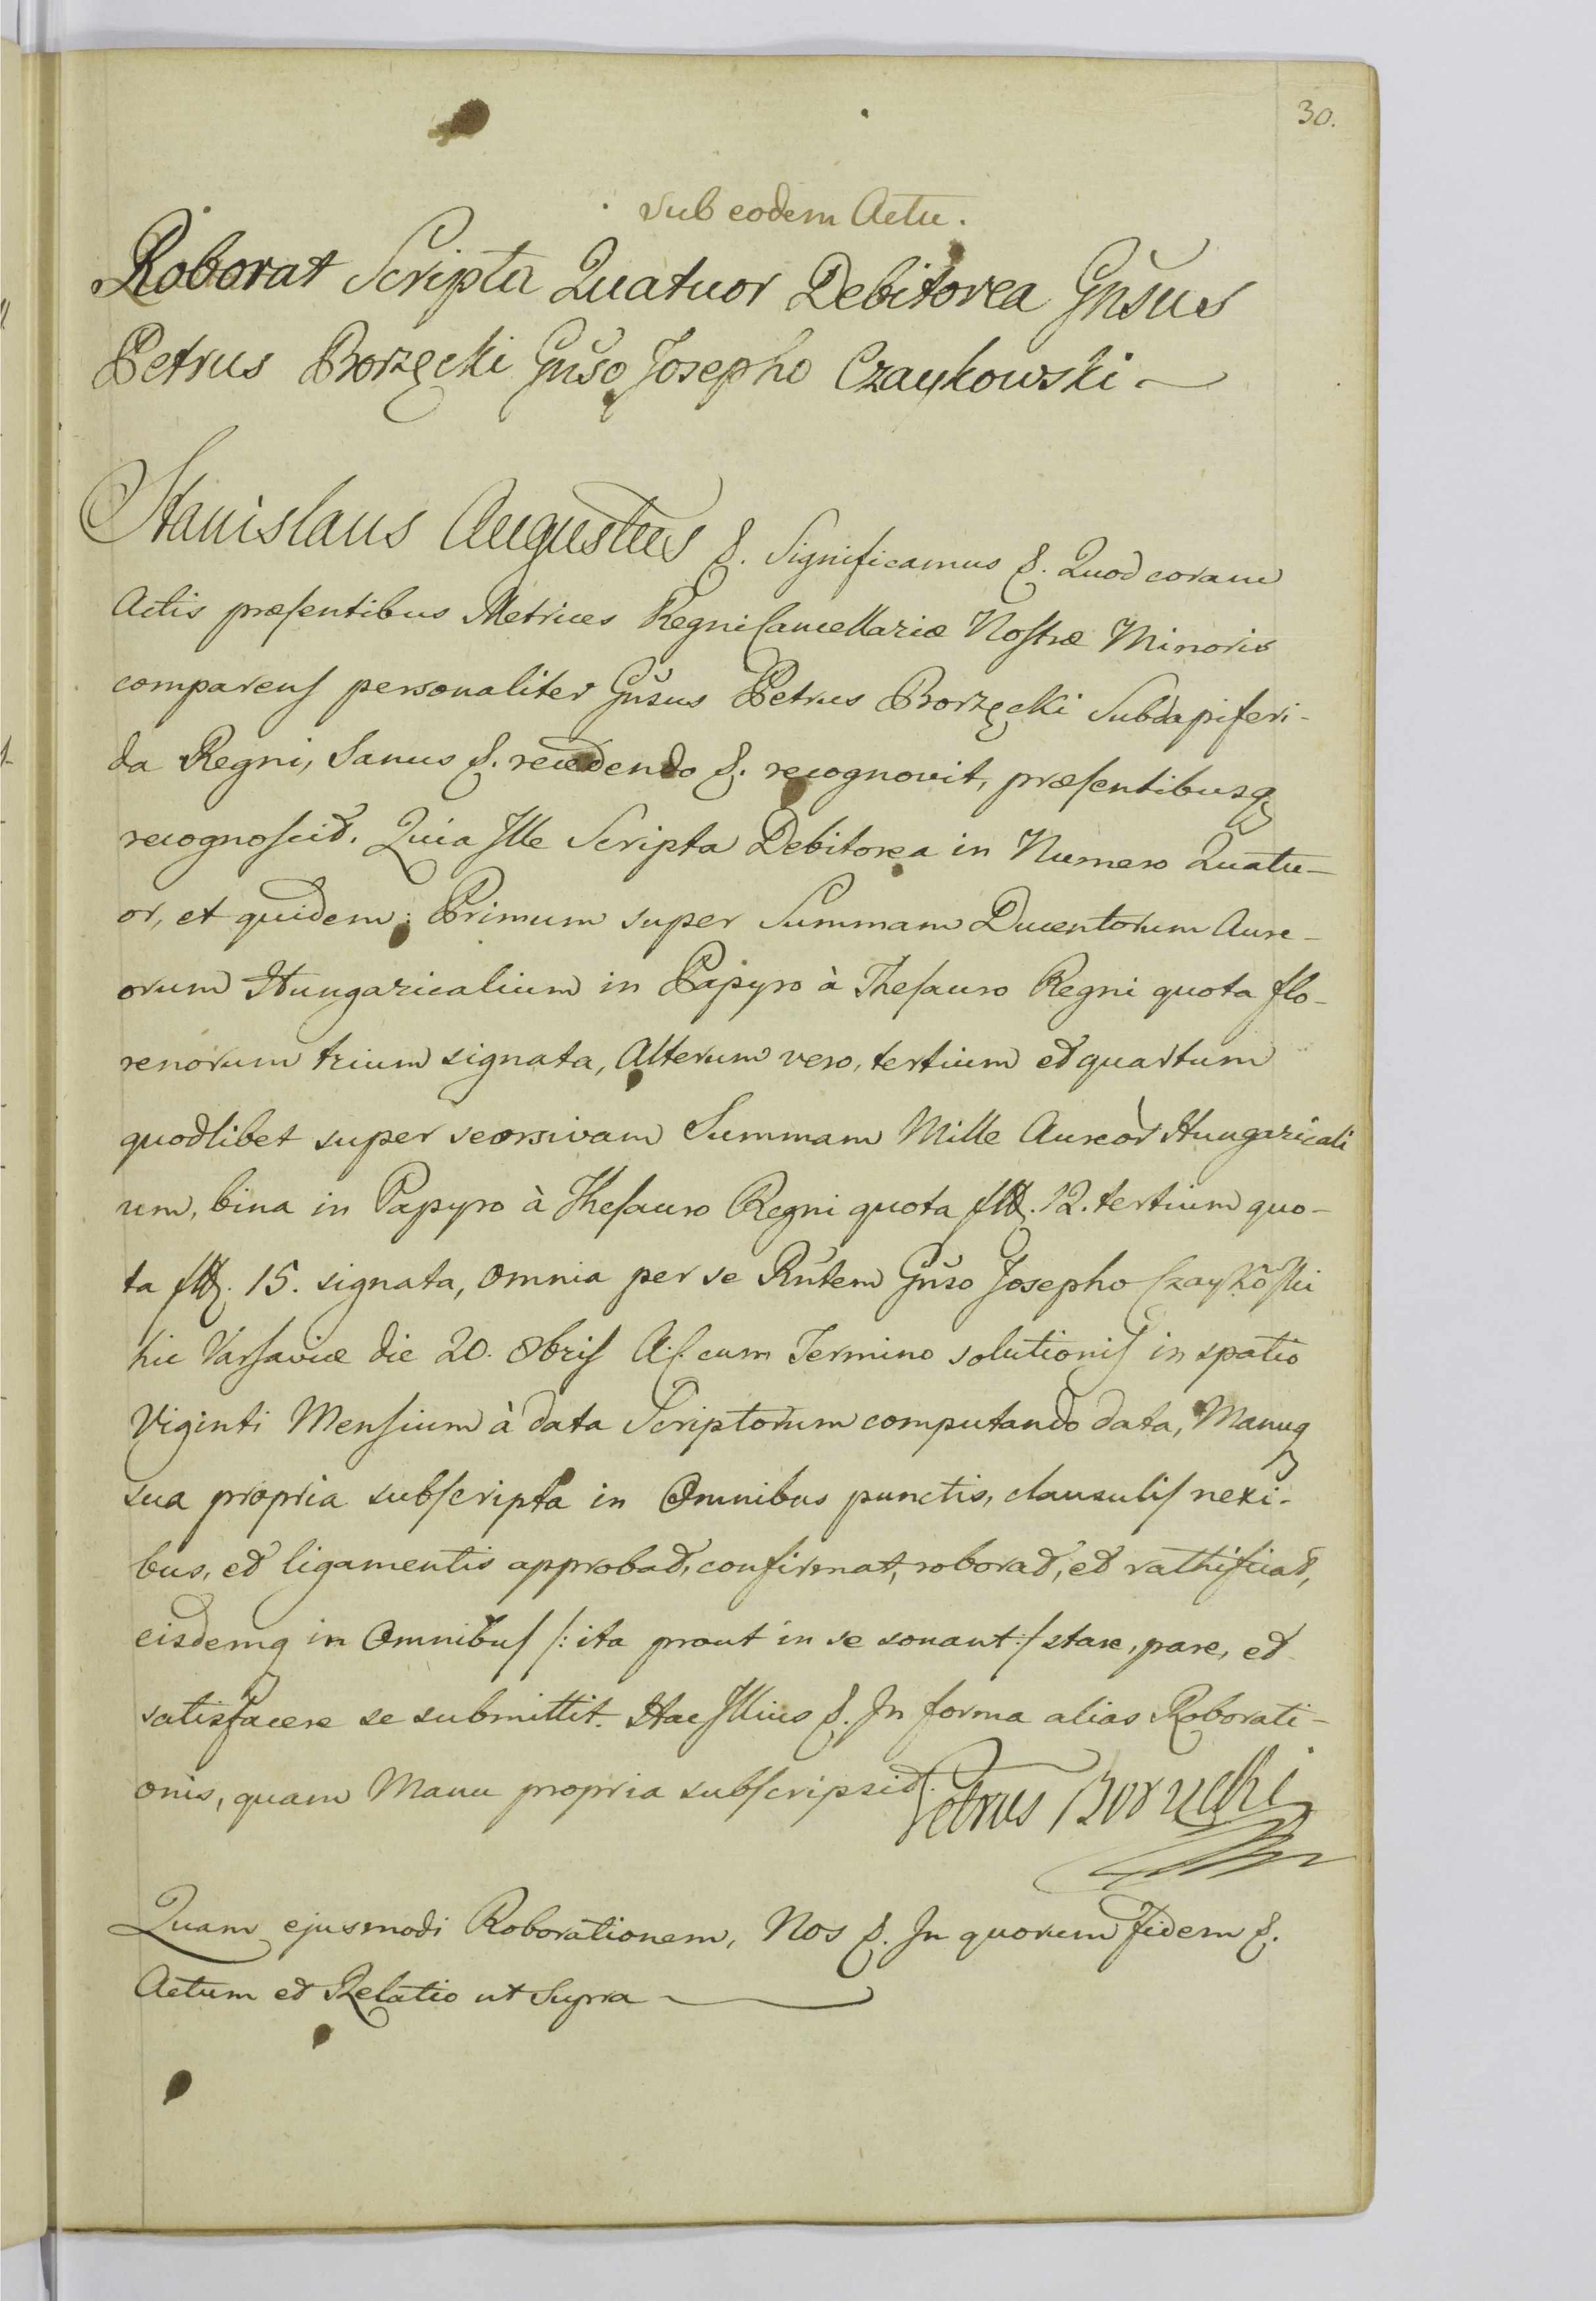 30.
Sub eodem Actu.
Roborat Scripta Quatuor Debitorea Gnsus
Petrus Borzęcki Gnso Josepho Czaykowski
Stanislaus Augustus &. Significamus &. Quod coram
Actis præsentibus Metrices Regni Cancellariæ Nostræ Minoris
comparens personaliter Gnsus Petrus Borzęcki Subdapiferi-
da Regni, Sanus &. recedendo &. recognovit, præsentibusq
recognoscit. Quia Ille Scripta Debitorea in Numero Quatu-
or, et quidem: Primum super Summam Ducentorum Aure-
orum Hungaricalium in Papyro à Thesauro Regni quota flo-
renorum trium signata, Alterum vero, tertium et quartum
quodlibet super seorsivam Summam Mille Aureor Hungaricali
um, bina in Papyro à Thesauro Regni quota fl. 12. tertium quo-
ta fl. 15. signata, omnia per se Rntem Gnso Josepho Czaykoski
hic Varsaviæ die 20. 8bris A. c. cum Termino solutionis in spatio
Viginti Mensium à data Scriptorum computando data, Manuq
sua propria subscripta in Omnibus punctis, clausulis nexi-
bus, et ligamentis approbat, confirmat, roborat, et rathificat,
eisdemq in Omnibus /: ita prout in se sonant :/ stare, pare, et
satisfacere se submittit. Hac Illius &. In forma alias Roborati-
onis, quam Manu propria subscripsit. Petrus Borzęcki
Quam ejusmodi Roborationem, Nos &. In quorum fidem &.
Actum et Relatio ut Supra